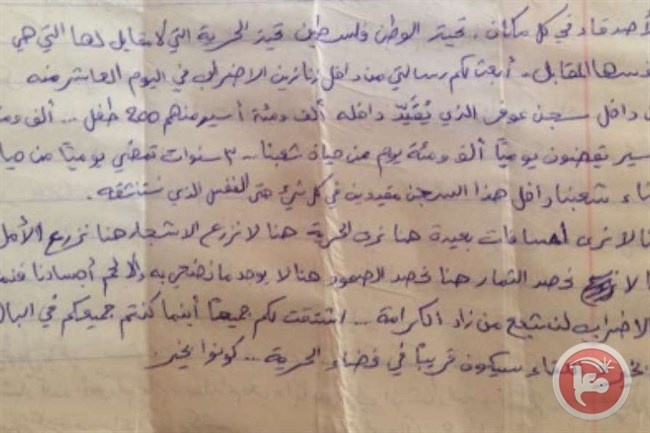 الأصدقاء في كل مكان. تحية الوطن فلسطين تحية الحرية التي لا مقابل لها التي هي
نفسها المقابل. أبعث لكم رسالتي من داخل زنازين الاضراب في اليوم العاشر منه
داخل سجن عوفر الذي يُقَيَّد داخله ألف ومئة أسير منهم 200 طفل ... ألف ومئة
أسير يقضون يومياً ألف ومئة يوم من حياة شعبنا - ٣ سنوات تمضي يومياً من
شعبنا داخل هذا السجن مقيدين في كل شيء حتى النفس الذي نستنشقه.
لا نرى مسافات بعيدة هنا نرى الحرية هنا لا نزرع الاشجار هنا نزرع الأمل
لا نحصد الثمار هنا نحصد الصمود هنا لا يوجد ما نضحي به إلا لحم أجسادنا
الاضراب لنشبع من زاد الكرامة ... اشتقت لكم جميعاً أينما كنتم جميعكم في البال
سيكون قريباً في فضاء الحرية ... كونوا بخير.